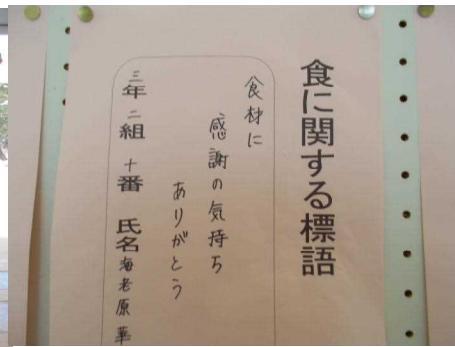 食に関する標語
食材に
感謝の気持ち
ありがとう
三年二組十番 氏名 海老原 華